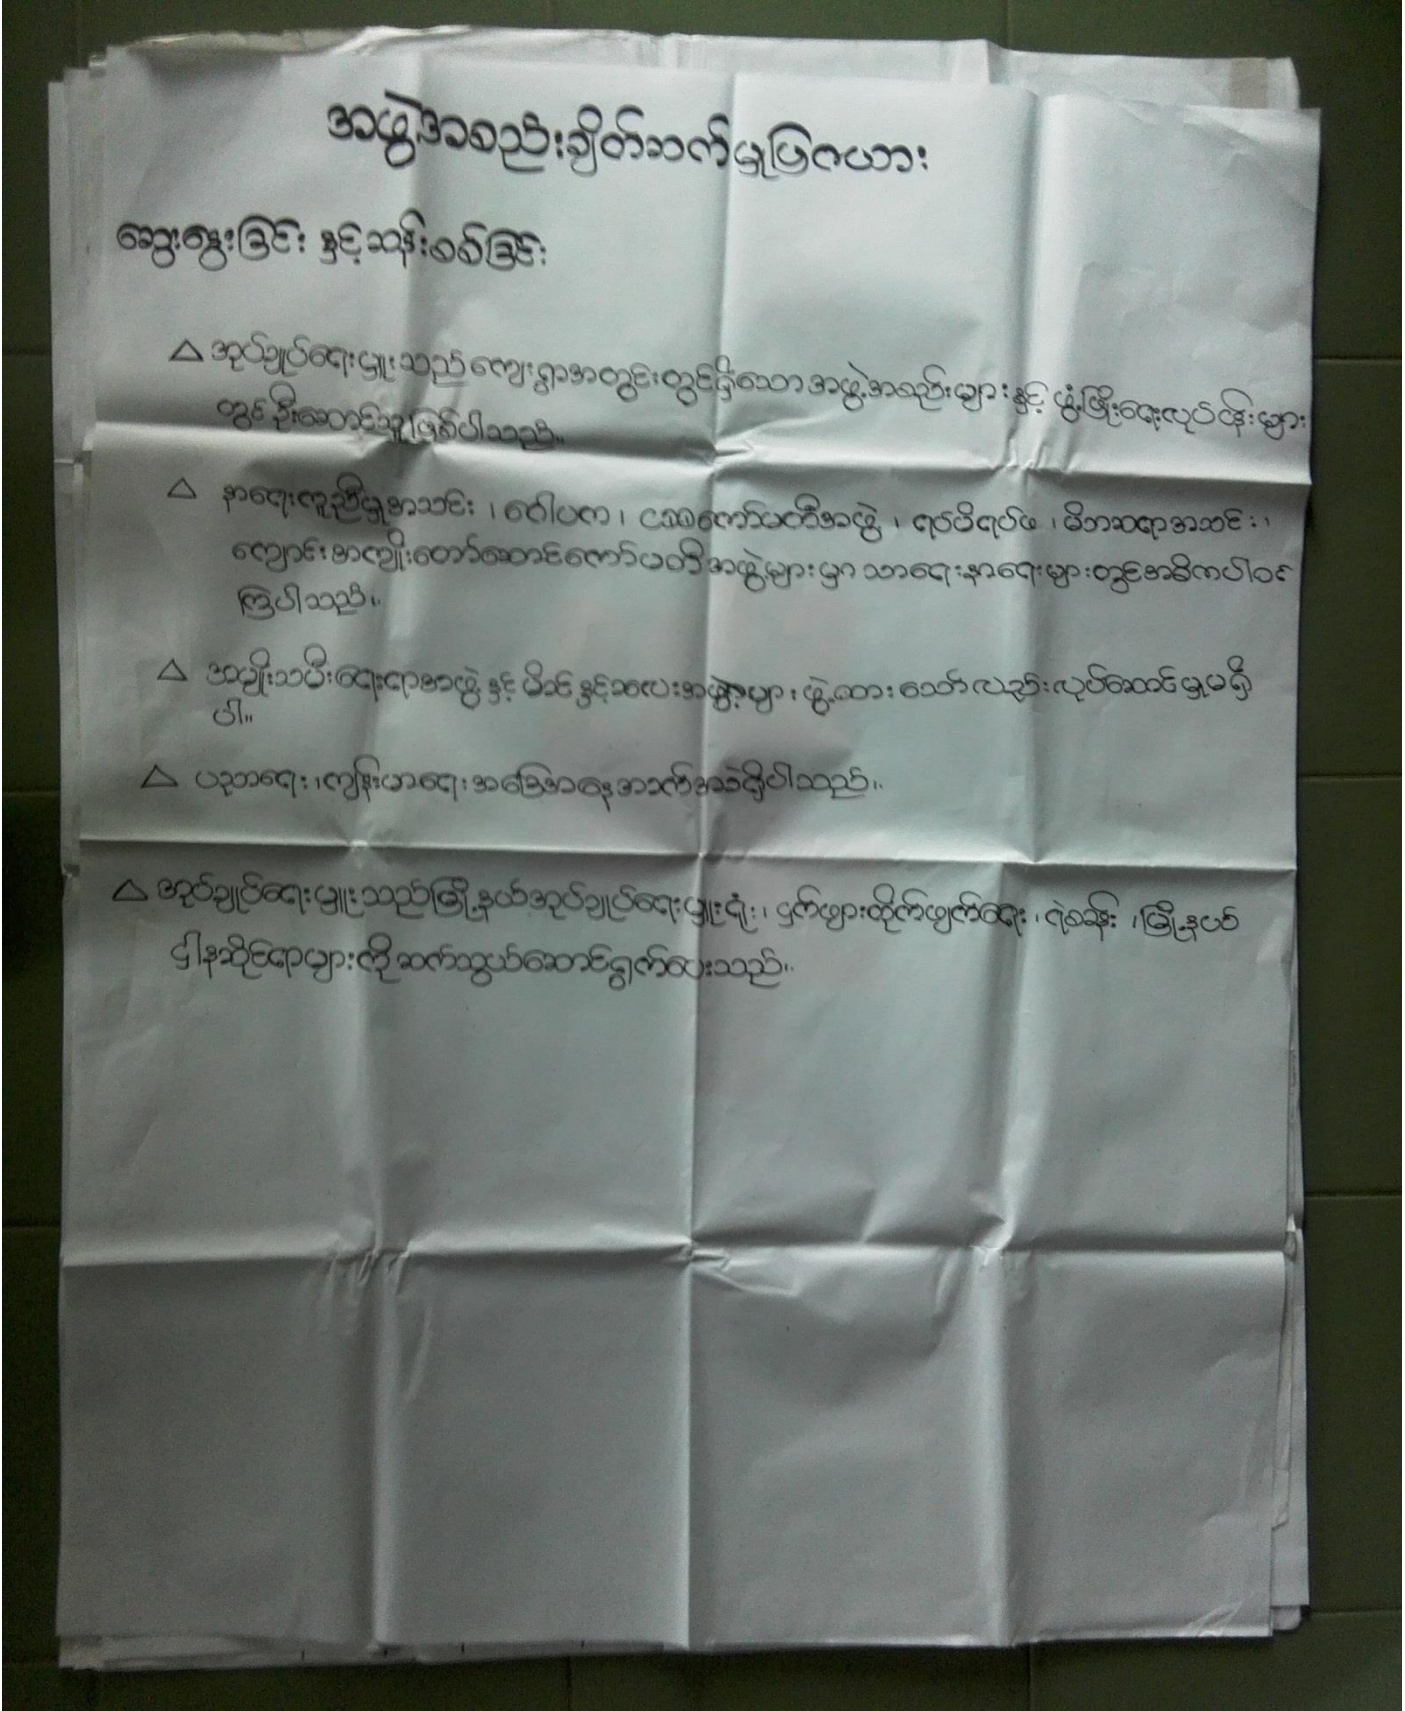 အဖွဲ့အစည်းချိတ်ဆက်မှုပြဇယား
ဆွေးနွေးခြင်း နှင့် ဆန်းစစ်ခြင်း
△ အုပ်ချုပ်ရေးမှူးသည် ကျေးရွာအတွင်းတွင်ရှိသော အဖွဲ့အစည်းများ နှင့် ဖွံ့ဖြိုးရေးလုပ်ငန်းများ
တွင် ဦးဆောင်သူဖြစ်ပါသည်။
△ နာရေးကူညီမှုအသင်း ၊ ဂေါပက ၊ ကော်မတီအဖွဲ့ ၊ ရပ်မိရပ်ဖ ၊ မိဘဆရာအသင်း ၊
ကျောင်းအကျိုးတော်ဆောင်ကော်မတီအဖွဲ့များမှာ သာရေးနာရေးများတွင်အဓိကပါဝင်
ကြပါသည်။
△ အမျိုးသမီးရေးရာအဖွဲ့ နှင့် မိခင်နှင့်ကလေးအဖွဲ့များ ဖွဲ့ထားသော်လည်းလုပ်ဆောင်မှုမရှိ
ပါ။
△ ပညာရေး ၊ ကျန်းမာရေး အခြေအနေအခက်အခဲရှိပါသည်။
△ အုပ်ချုပ်ရေးမှူးသည်မြို့နယ်အုပ်ချုပ်ရေးမှူးရုံး ၊ ငှက်ဖျားတိုက်ဖျက်ရေး ၊ ရဲစခန်း ၊ မြို့နယ်
ဌါနဆိုင်ရာများကိုဆက်သွယ်ဆောင်ရွက်ပေးသည်။